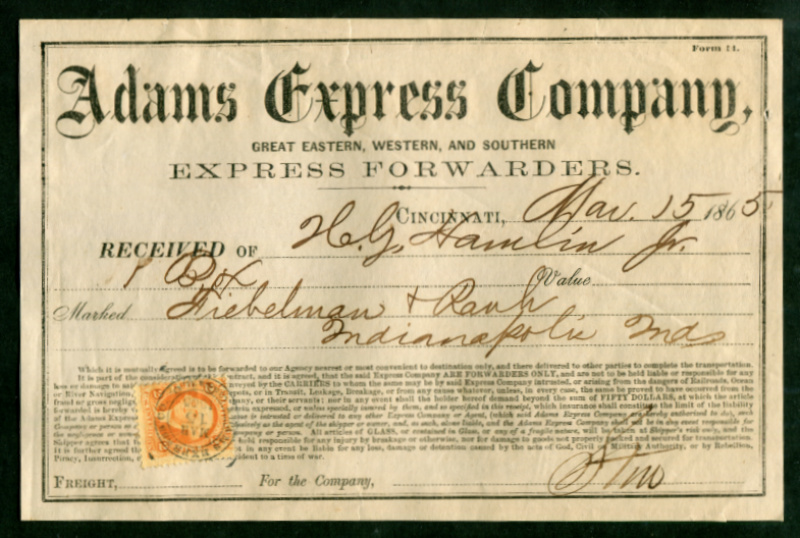 Form 14.
Adams Express Company,
GREAT EASTERN, WESTERN, AND SOUTHERN
EXPRESS FORWARDERS.
CINCINNATI, Mar. 15 1865
RECEIVED OF H. G. Hamlin Jr.
1 Box Value
Marked Fiebelman & Rauh
Indianapolis Ind
Which it is mutually agreed is to be forwarded to our Agency nearest or most convenient to destination only, and there delivered to other parties to complete the transportation.
It is part of the consideration of this contract, and it is agreed, that the said Express Company ARE FORWARDERS ONLY, and are not to be held liable or responsible for any
loss or damage to said veyed by the CARRIERS to whom the same may be by said Express Company intrusted, or arising from the dangers of Railroads, Ocean
or River Navigation pots, or in Transit, Leakage, Breakage, or from any cause whatever, unless, in every case, the same be proved to have occurred from the
fraud or gross neglig any, or their servants; nor in any event shall the holder hereof demand beyond the sum of FIFTY DOLLARS, at which the article
forwarded is hereby expressed, or unless specially insured by them, and so specified in this receipt, which insurance shall constitute the limit of the liability
of the Adams Express is intrusted or delivered to any other Express Company or Agent, (which said Adams Express Company are hereby authorized to do), such
Company or person so lusively as the agent of the shipper or owner, and, as such, alone liable, and the Adams Express Company shall not be in any event responsible for
the negligence or company or person. All articles of GLASS, or contained in Glass, or any of a fragile nature, will be taken at Shipper's risk only, and the
Shipper agrees that held responsible for any injury by breakage or otherwise, nor for damage to goods not properly packed and secured for transportation.
It is further agreed in any event be liable for any loss, damage or detention caused by the acts of God, Civil or Military Authority, or by Rebellion,
Piracy, Insurrection, cident to a time of war.
FREIGHT, For the Company,